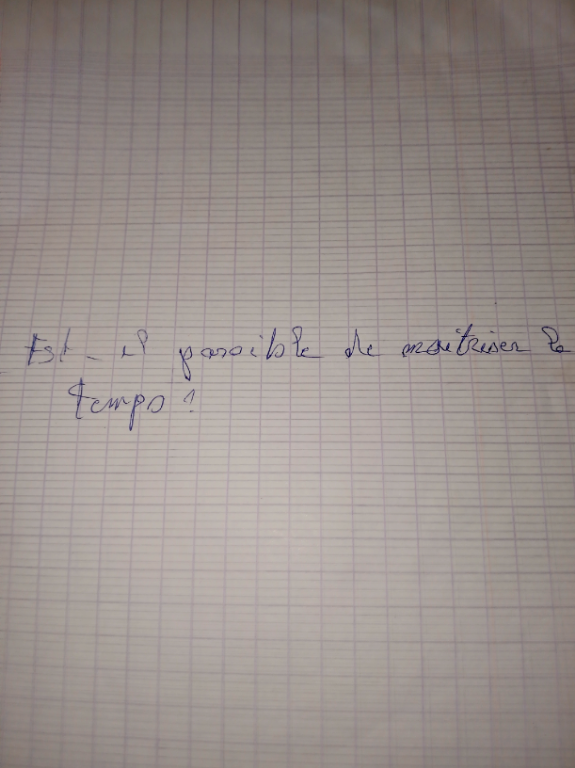 Est-il possible de maitriser le
temps ?